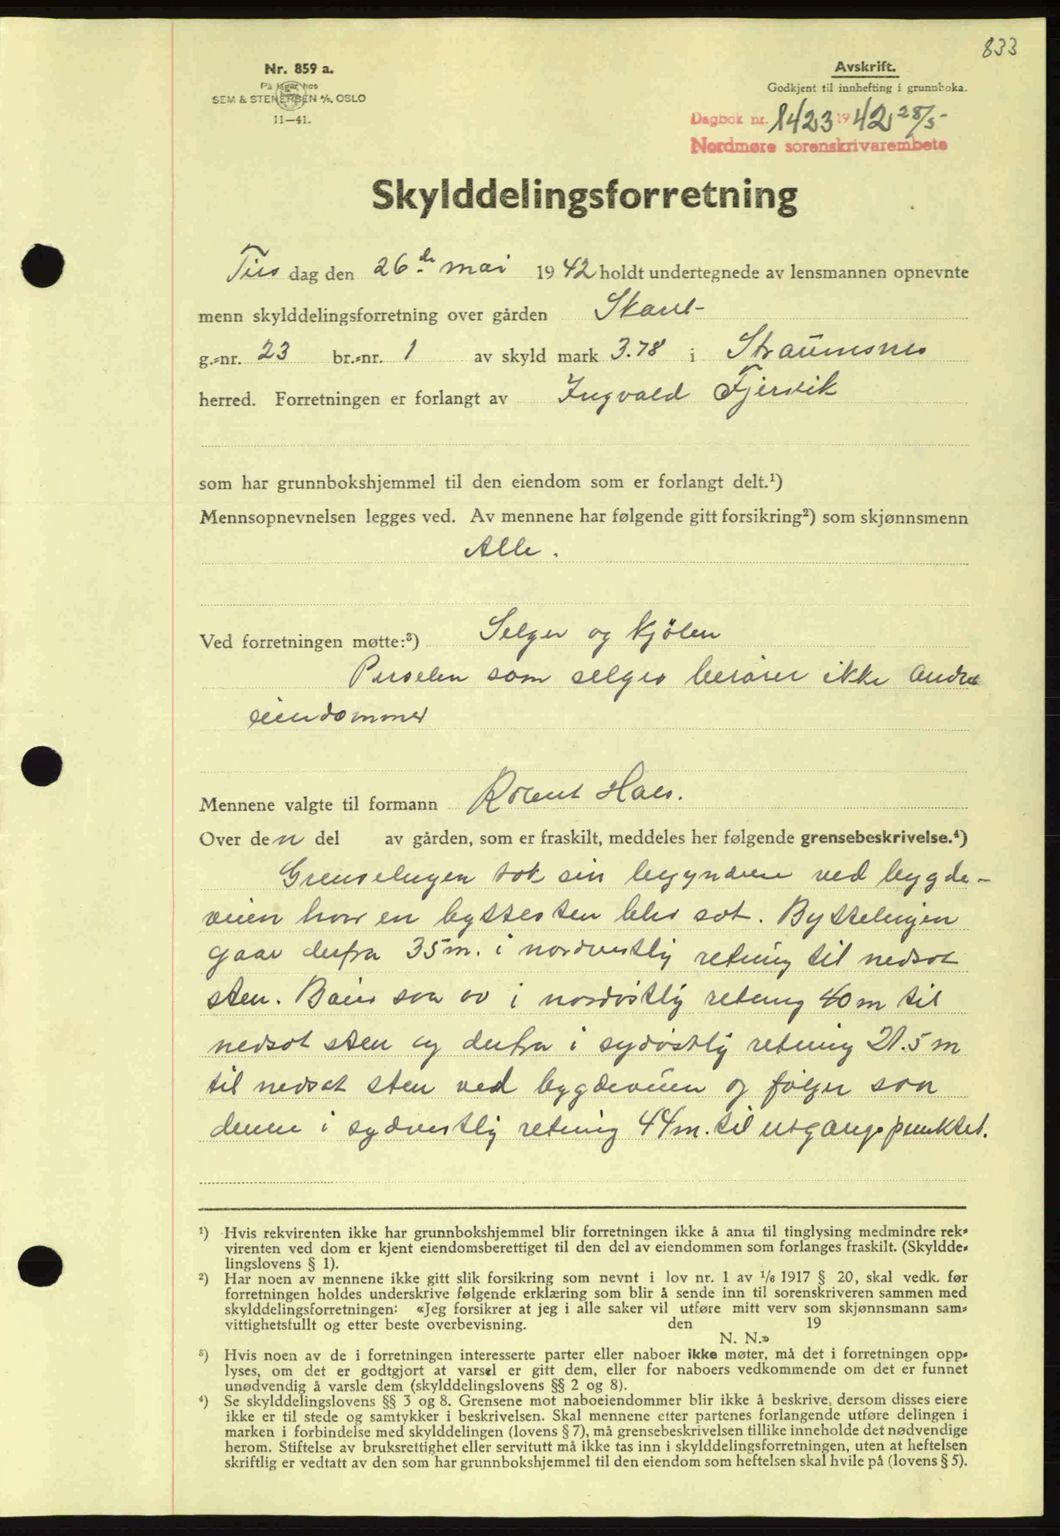 833
Nr. 859 a.
På lager hos
SEM & STENERSEN A/S, OSLO
11—41.
Avskrift.
Godkjent til innhefting i grunnboka.
Dagbok nr. 1423 1942 28/5-
Nordmøre sorenskrivarembete
Skylddelingsforretning
Tirs dag den 26de mai 1942 holdt undertegnede av lensmannen opnevnte
menn skylddelingsforretning over gården Skar
g.-nr. 23 br.-nr. 1 av skyld mark 3.78 i Straumsnes
herred. Forretningen er forlangt av Ingvald Fjersvik
som har grunnbokshjemmel til den eiendom som er forlangt delt.¹)
Mennsopnevnelsen legges ved. Av mennene har følgende gitt forsikring²) som skjønnsmenn
Alle.
Ved forretningen møtte:³) Selger og kjöber
Parselen som selges berører ikke andre
eiendommer
Mennene valgte til formann Robert Hals.
Over den del av gården, som er fraskilt, meddeles her følgende grensebeskrivelse.⁴)
Grenselinjen tok sin begyndelse ved bygde-
veien hvor en byttesten blev sat. Byttelinjen
gaar derfra 35 m. i nordvestlig retning til nedsat
sten. Bøies saa av i nordøstlig retning 40 m til
nedsat sten og derfra i sydøstlig retning 21.5 m
til nedsat sten ved bygdeveien og følger saa
denne i sydvestlig retning 44 m. til utgangspunktet.
¹) Hvis rekvirenten ikke har grunnbokshjemmel blir forretningen ikke å anta til tinglysing medmindre rek-
virenten ved dom er kjent eiendomsberettiget til den del av eiendommen som forlanges fraskilt. (Skyldde-
lingslovens § 1).
²) Har noen av mennene ikke gitt slik forsikring som nevnt i lov nr. 1 av ¹/₆ 1917 § 20, skal vedk. før
forretningen holdes underskrive følgende erklæring som blir å sende inn til sorenskriveren sammen med
skylddelingsforretningen: «Jeg forsikrer at jeg i alle saker vil utføre mitt verv som skjønnsmann sam-
vittighetsfullt og etter beste overbevisning. den 19
N. N.»
³) Hvis noen av de i forretningen interesserte parter eller naboer ikke møter, må det i forretningen opp-
lyses, om det er godtgjort at varsel er gitt dem, eller for naboers vedkommende om det er funnet
unødvendig å varsle dem (skylddelingslovens §§ 2 og 8).
⁴) Se skylddelingslovens §§ 3 og 8. Grensene mot naboeiendommer blir ikke å beskrive, dersom disses eiere
ikke er til stede og samtykker i beskrivelsen. Skal mennene etter partenes forlangende utføre delingen i
marken i forbindelse med skylddelingen (lovens § 7), må grensebeskrivelsen tillike inneholde det nødvendige
herom. Stiftelse av bruksrettighet eller servitutt må ikke tas inn i skylddelingsforretningen, uten at heftelsen
skriftlig er vedtatt av den som har grunnbokshjemmel til den eiendom som heftelsen skal hvile på (lovens § 5).